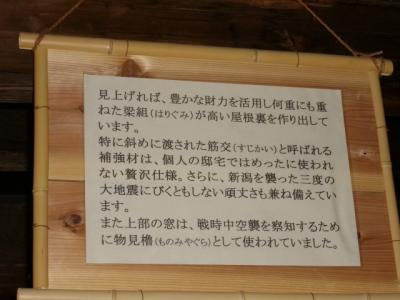 見上げれば、豊かな財力を活用し何重にも重
ねた梁組(はりぐみ)が高い屋根裏を作り出して
います。
特に斜めに渡された筋交(すじかい)と呼ばれる
補強材は、個人の邸宅ではめったに使われ
ない贅沢仕様。さらに、新潟を襲った三度の
大地震にびくともしない頑丈さも兼ね備えて
います。
また上部の窓は、戦時中空襲を察知するため
に物見櫓(ものみやぐら)として使われていました。